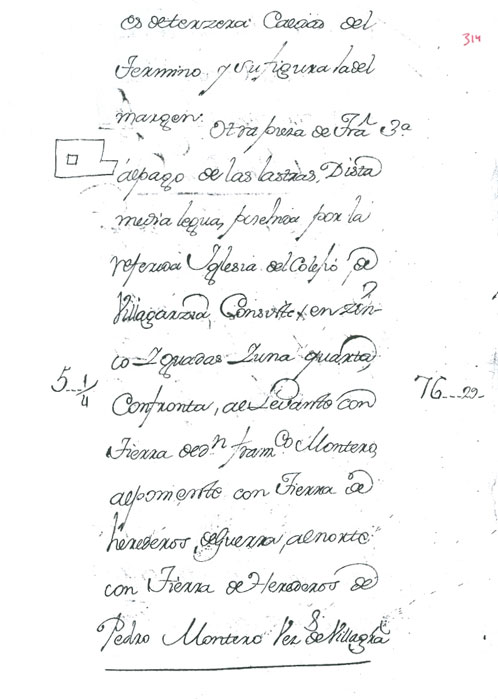 314
es detterzera Calidad del
Termino, y su figura la del
margen.
Otra pieza de Trā 3ª
al pago de las lastras, Dista
media legua, poseida por la
referida Iglesia del Colexio de
Villagarzia, Consiste, en zin-
co Yguadas Y una quarta,
5 1/4
76 29
Confronta, al Levante con
Tierra de dn franco Montero,
al poniente con Tierra de
herederos, de Guerra, al norte
con Tierra de Herederos de
Pedro Montero Vezs de Villagra